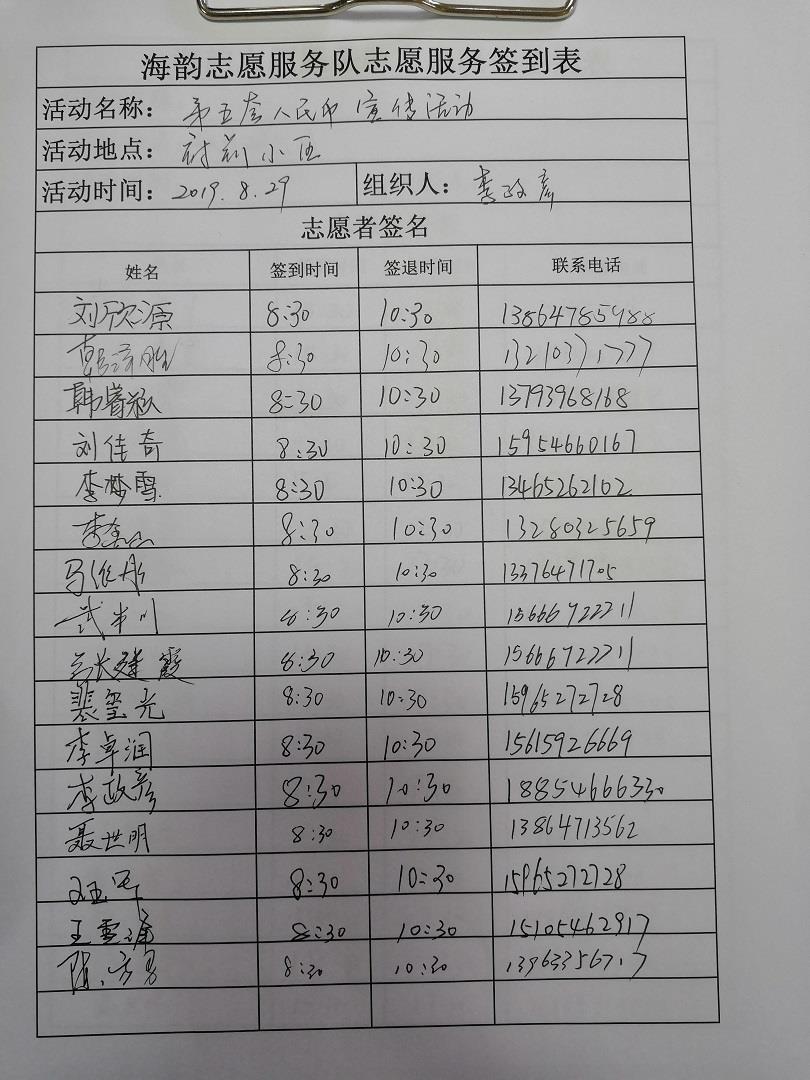 海韵志愿服务队志愿服务签到表
活动名称： 第五套人民币宣传活动
活动地点： 小区
活动时间： 2019.8.29 组织人： 李政彦
志愿者签名
姓名 签到时间 签退时间 联系电话
刘欣源 8:30 10:30 13864785988
韩 8:30 10:30 13210371777
韩睿 8:30 10:30 13793968168
刘佳奇 8:30 10:30 15954660167
李梦雪 8:30 10:30 13465262102
李 8:30 10:30 13280325659
马维彤 8:30 10:30 13376471705
武 8:30 10:30 15666722211
8:30 10:30 15666722211
裴玺亮 8:30 10:30 15965272728
李卓润 8:30 10:30 15615926669
李政彦 8:30 10:30 18854666330
聂世明 8:30 10:30 13864713562
8:30 10:30 15965272728
王雪 8:30 10:30 15105462917
陈 8:30 10:30 13963356717